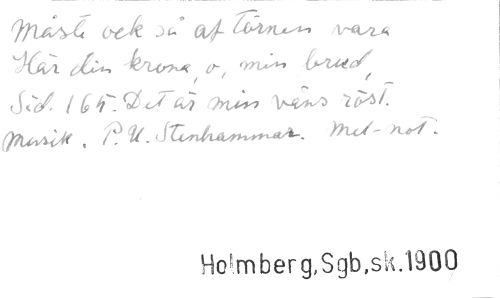 Måste ock så af törnen vara
Här din krona, o, min brud,
Sid. 165. Det är min väns röst.
Musik. P. U. Stenhammar. Mel-not.
Holmberg,Sgb,sk.1900